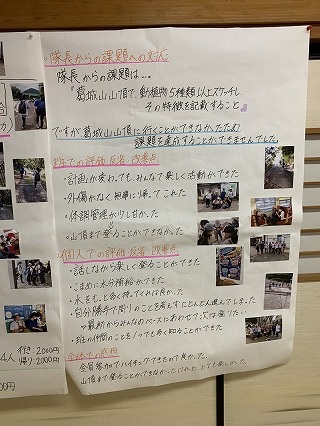 隊長からの課題への対応
隊長からの課題は…
『葛城山山頂で、動植物5種類以上スケッチし、
その特徴を記載すること』
ですが葛城山山頂に行くことができなかったため
課題を達成することができませんでした。
班での評価 反省 改善点
・計画が変わっても、みんなで楽しく活動ができた
・外傷がなく無事に帰ってこれた
・体調管理が少し甘かった
・山頂まで登ることができなかった
個人での評価 反省 改善点
・話しながら楽しく登ることができた
・こまめに水分補給ができた
・水をもっと多く持ってくれば良かった
・自分勝手で周りのことを考えずにどんどん進んでしまった
→最初からみんなのペースにあわせて次は登りたい
・班の仲間のことをもっとも良く知ることができた
全体での感想
全員参加でハイキングできたので良かった。
山頂まで登ることができなかったけれど、とても楽しかった。
4人
行き:2000円
帰り:2000円